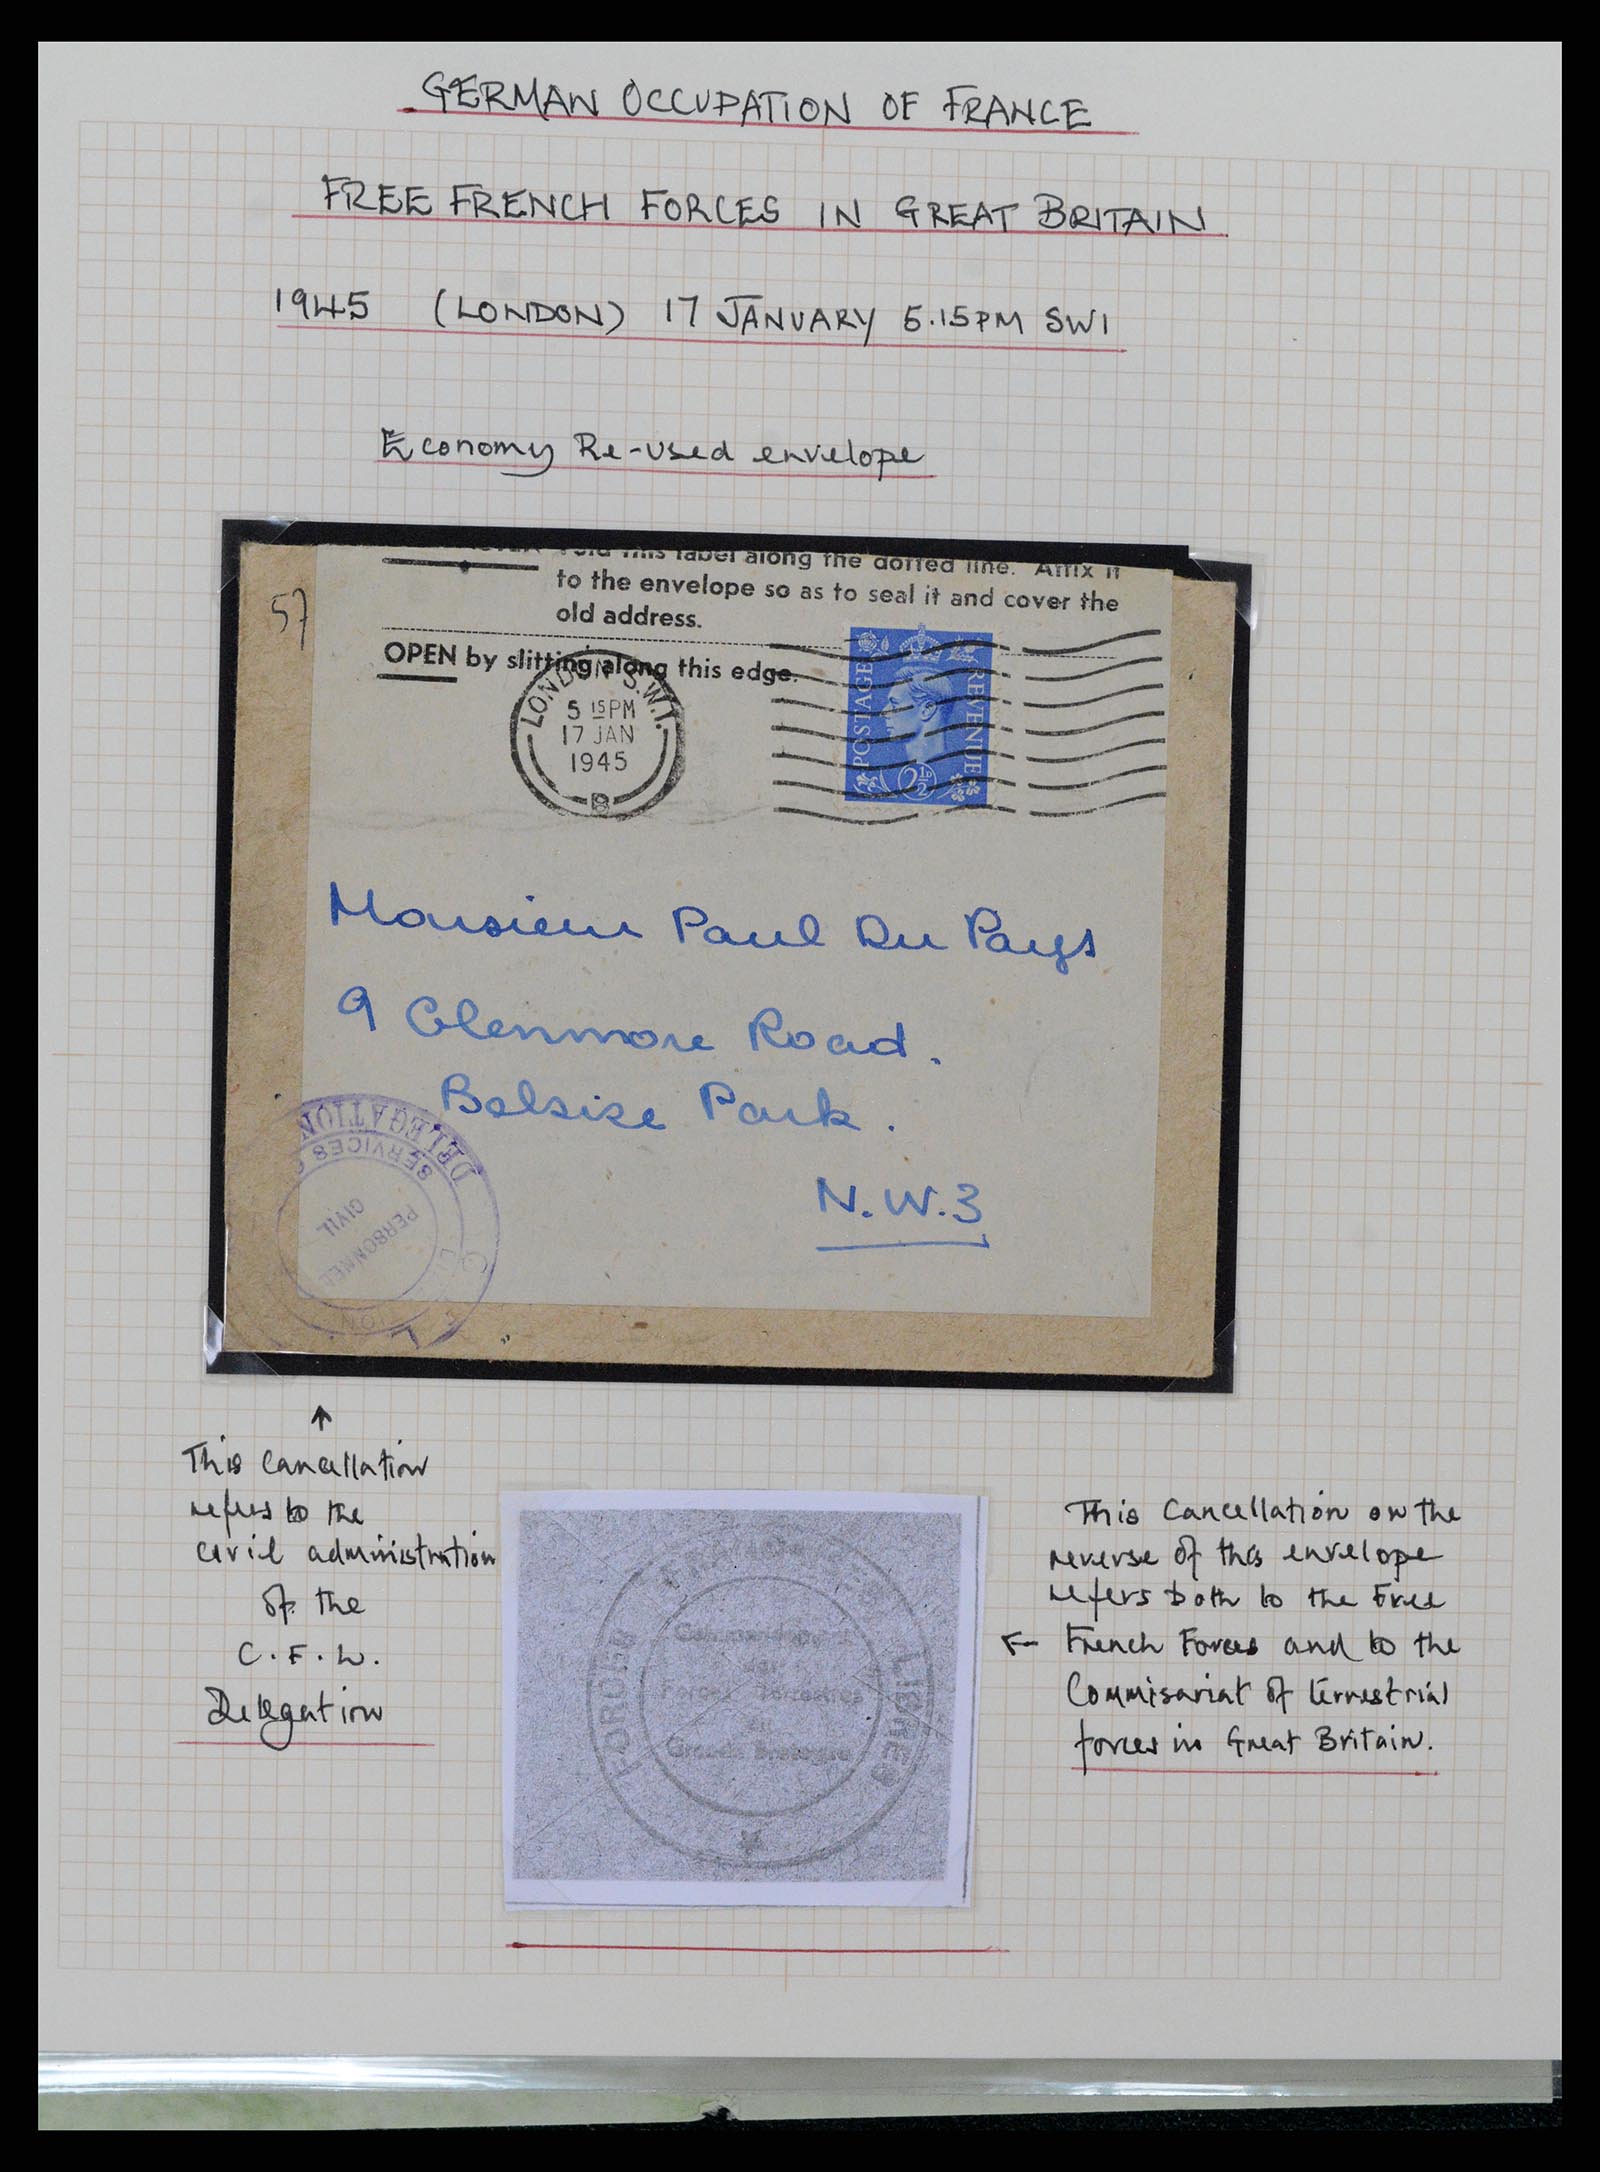 GERMAN OCCUPATION OF FRANCE
FREE FRENCH FORCES IN GREAT BRITAIN
1945 (LONDON) 17 JANUARY 5.15PM SW1
Economy Re-used envelope
57
this label along the dotted line. Affix it
to the envelope so as to seal it and cover the
old address.
OPEN by slitting along this edge.
LONDON S.W.1.
5 15PM
17 JAN
1945
B
POSTAGE
REVENUE
2½D
Monsieur Paul Du Pays
9 Glenmore Road.
Belsize Park.
N.W.3
DELEGATION
SERVICES
PERSONNEL
CIVIL
This Cancellation
refers to the
civil administration
of the
C.F.L.
Delegation
FORCES
LIBRES
Commandement
des
Forces Terrestres
en
Grande Bretagne
This Cancellation on the
reverse of this envelope
refers both to the Free
French Forces and to the
Commisariat of terrestrial
forces in Great Britain.